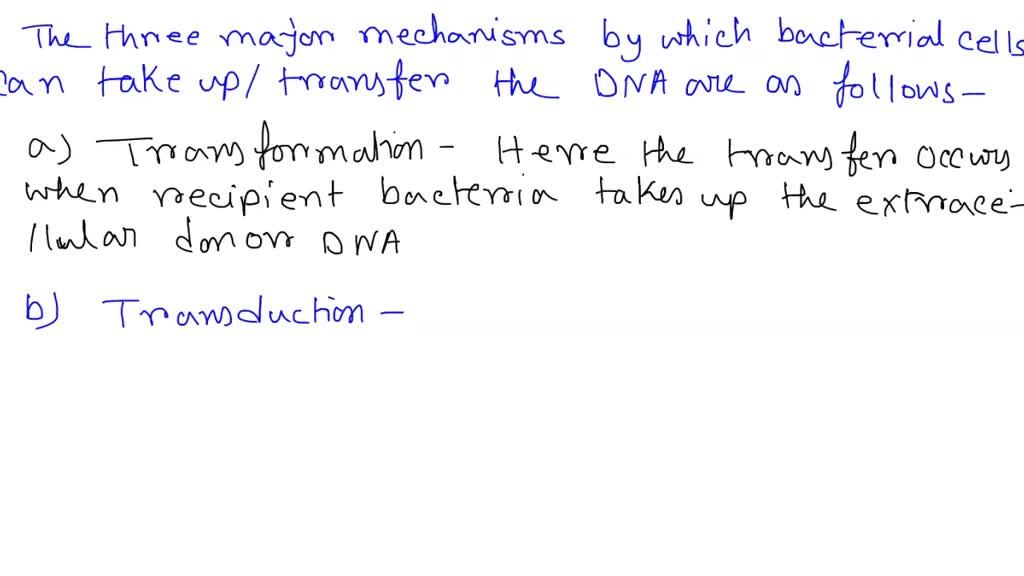 The three major mechanisms by which bacterial cells
can take up/ transfer the DNA are as follows -
a) Transformation - Here the transfer occurs
when recipient bacteria takes up the extrace-
llular donor DNA
b) Transduction -